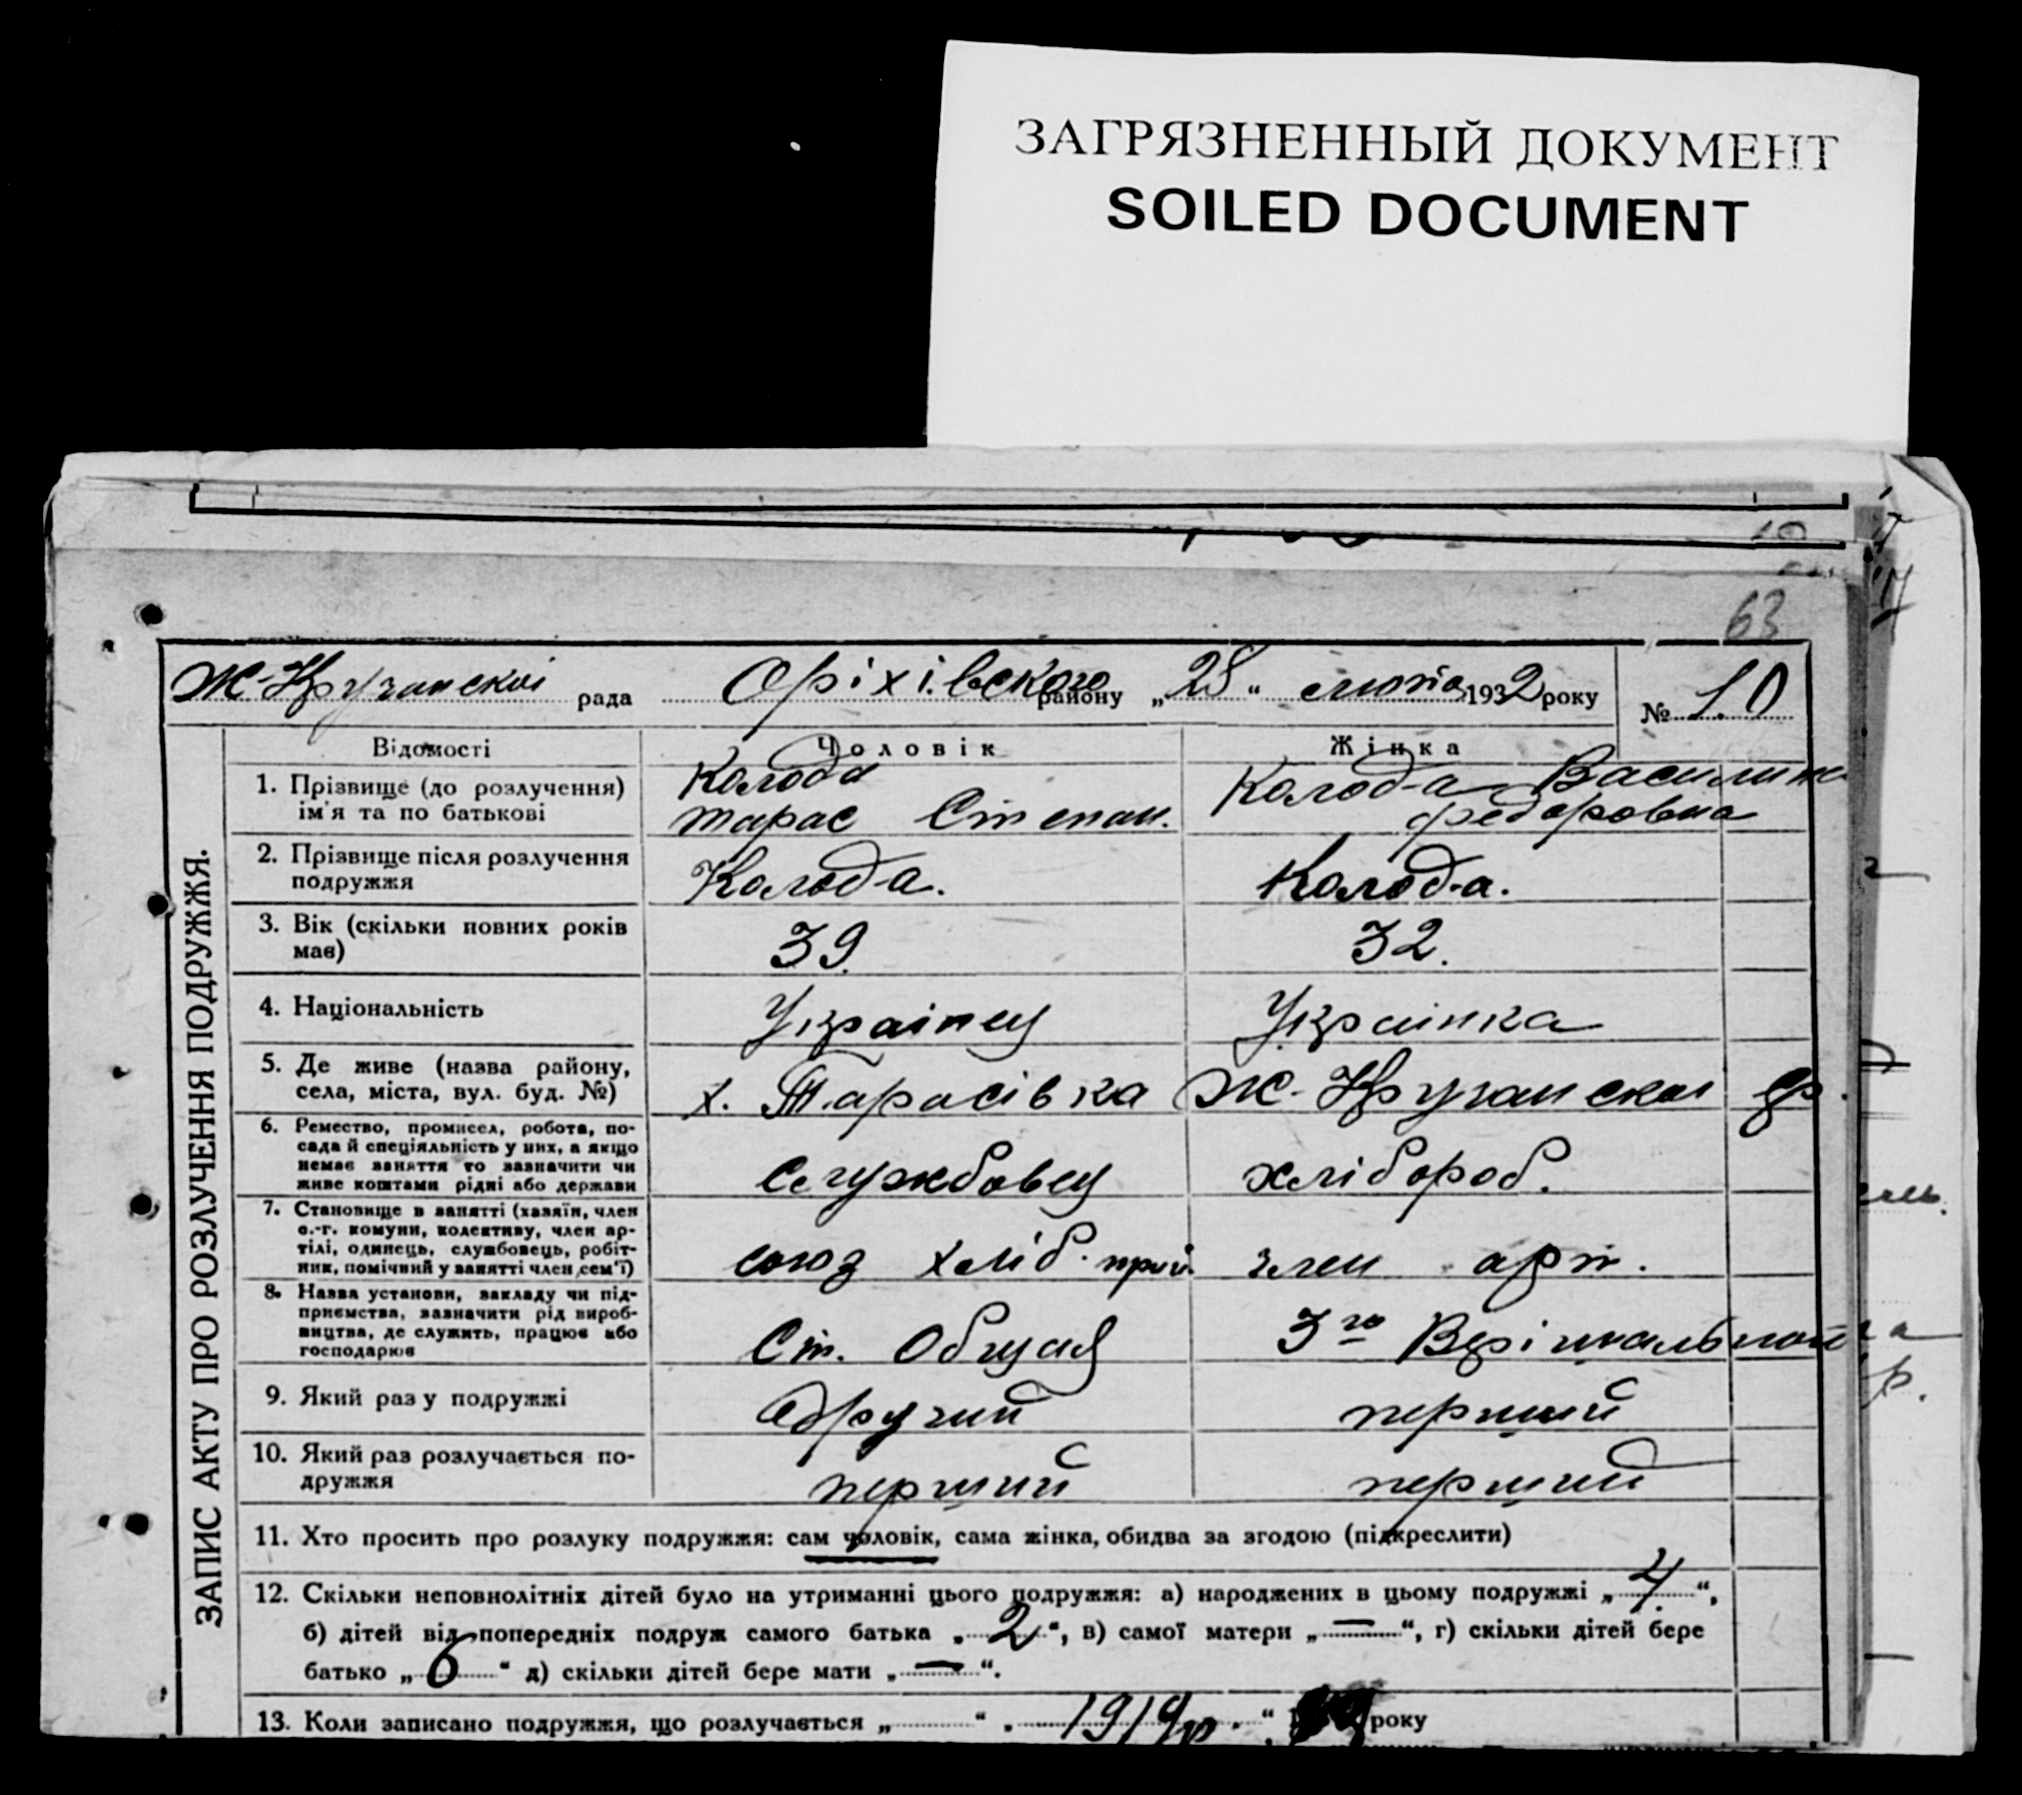 ЗАГРЯЗНЕННЫЙ ДОКУМЕНТ
SOILED DOCUMENT
63
рада Оріхівського району „28“ лютого 1932 року № 10
ЗАПИС АКТУ ПРО РОЗЛУЧЕННЯ ПОДРУЖЖЯ.
Відомості Чоловік Жінка
1. Прізвище (до розлучення) Колода Колода
ім'я та по батькові Тарас Степан. Федоровна
2. Прізвище після розлучення
подружжя Колода. Колода.
3. Вік (скільки повних років
має) 39. 32.
4. Національність Українец Українка
5. Де живе (назва району,
села, міста, вул. буд. №) х. Тарасівка
6. Ремество, промисел, робота, по-
сада й спеціяльність у них, а якщо
немає заняття то зазначити чи
живе коштами рідні або держави Службовец хлібороб.
7. Становище в занятті (хазяїн, член
с.-г. комуни, колективу, член ар-
тілі, одинець, службовець, робіт-
ник, помічний у занятті член сем'ї) союз хліб. член арт.
8. Назва установи, закладу чи під-
приємства, зазначити рід вироб-
ництва, де служить, працює або
господарює Ст. 3го
9. Який раз у подружжі другий перший
10. Який раз розлучається по-
дружжя перший перший
11. Хто просить про розлуку подружжя: сам чоловік, сама жінка, обидва за згодою (підкреслити)
12. Скільки неповнолітніх дітей було на утриманні цього подружжя: а) народжених в цьому подружжі „4“,
б) дітей від попередніх подруж самого батька „2“, в) самої матери „—“, г) скільки дітей бере
батько „6“ д) скільки дітей бере мати „—“.
13. Коли записано подружжя, що розлучається „ “ „1919 р.“ року